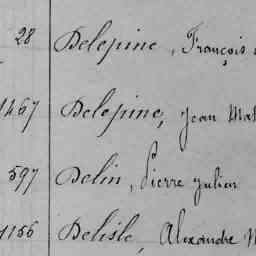 28 Delepine, François
1467 Delepine, Jean Mat
597 Delin, Pierre Julien
1156 Delisle, Alexandre